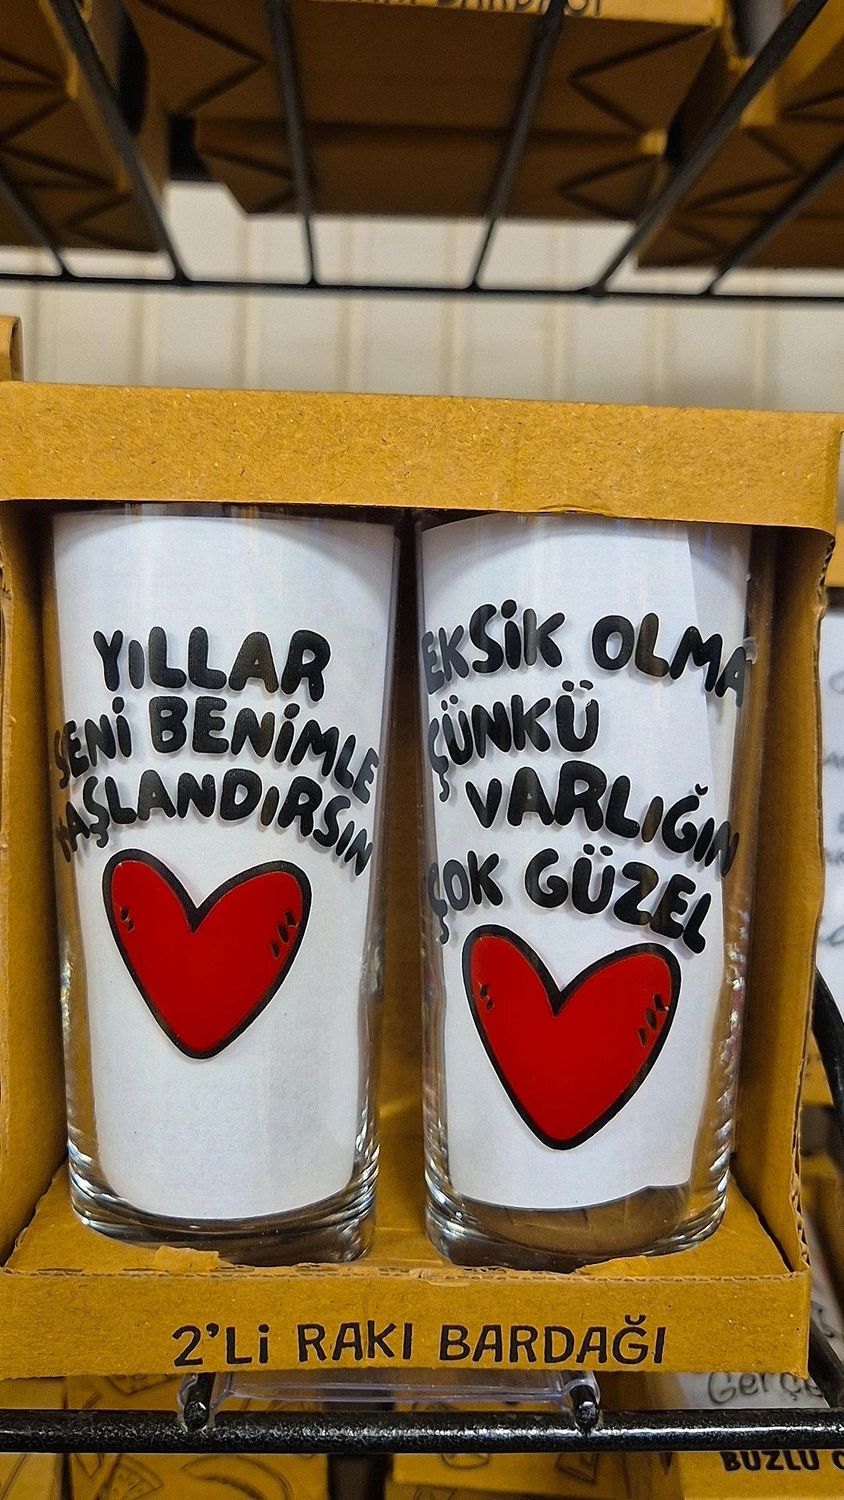 BARDAĞI
YILLAR
SENİ BENİMLE
YAŞLANDIRSIN
EKSİK OLMA
ÇÜNKÜ
VARLIĞIN
ÇOK GÜZEL
2'Lİ RAKI BARDAĞI
Gerçe
BUZLU